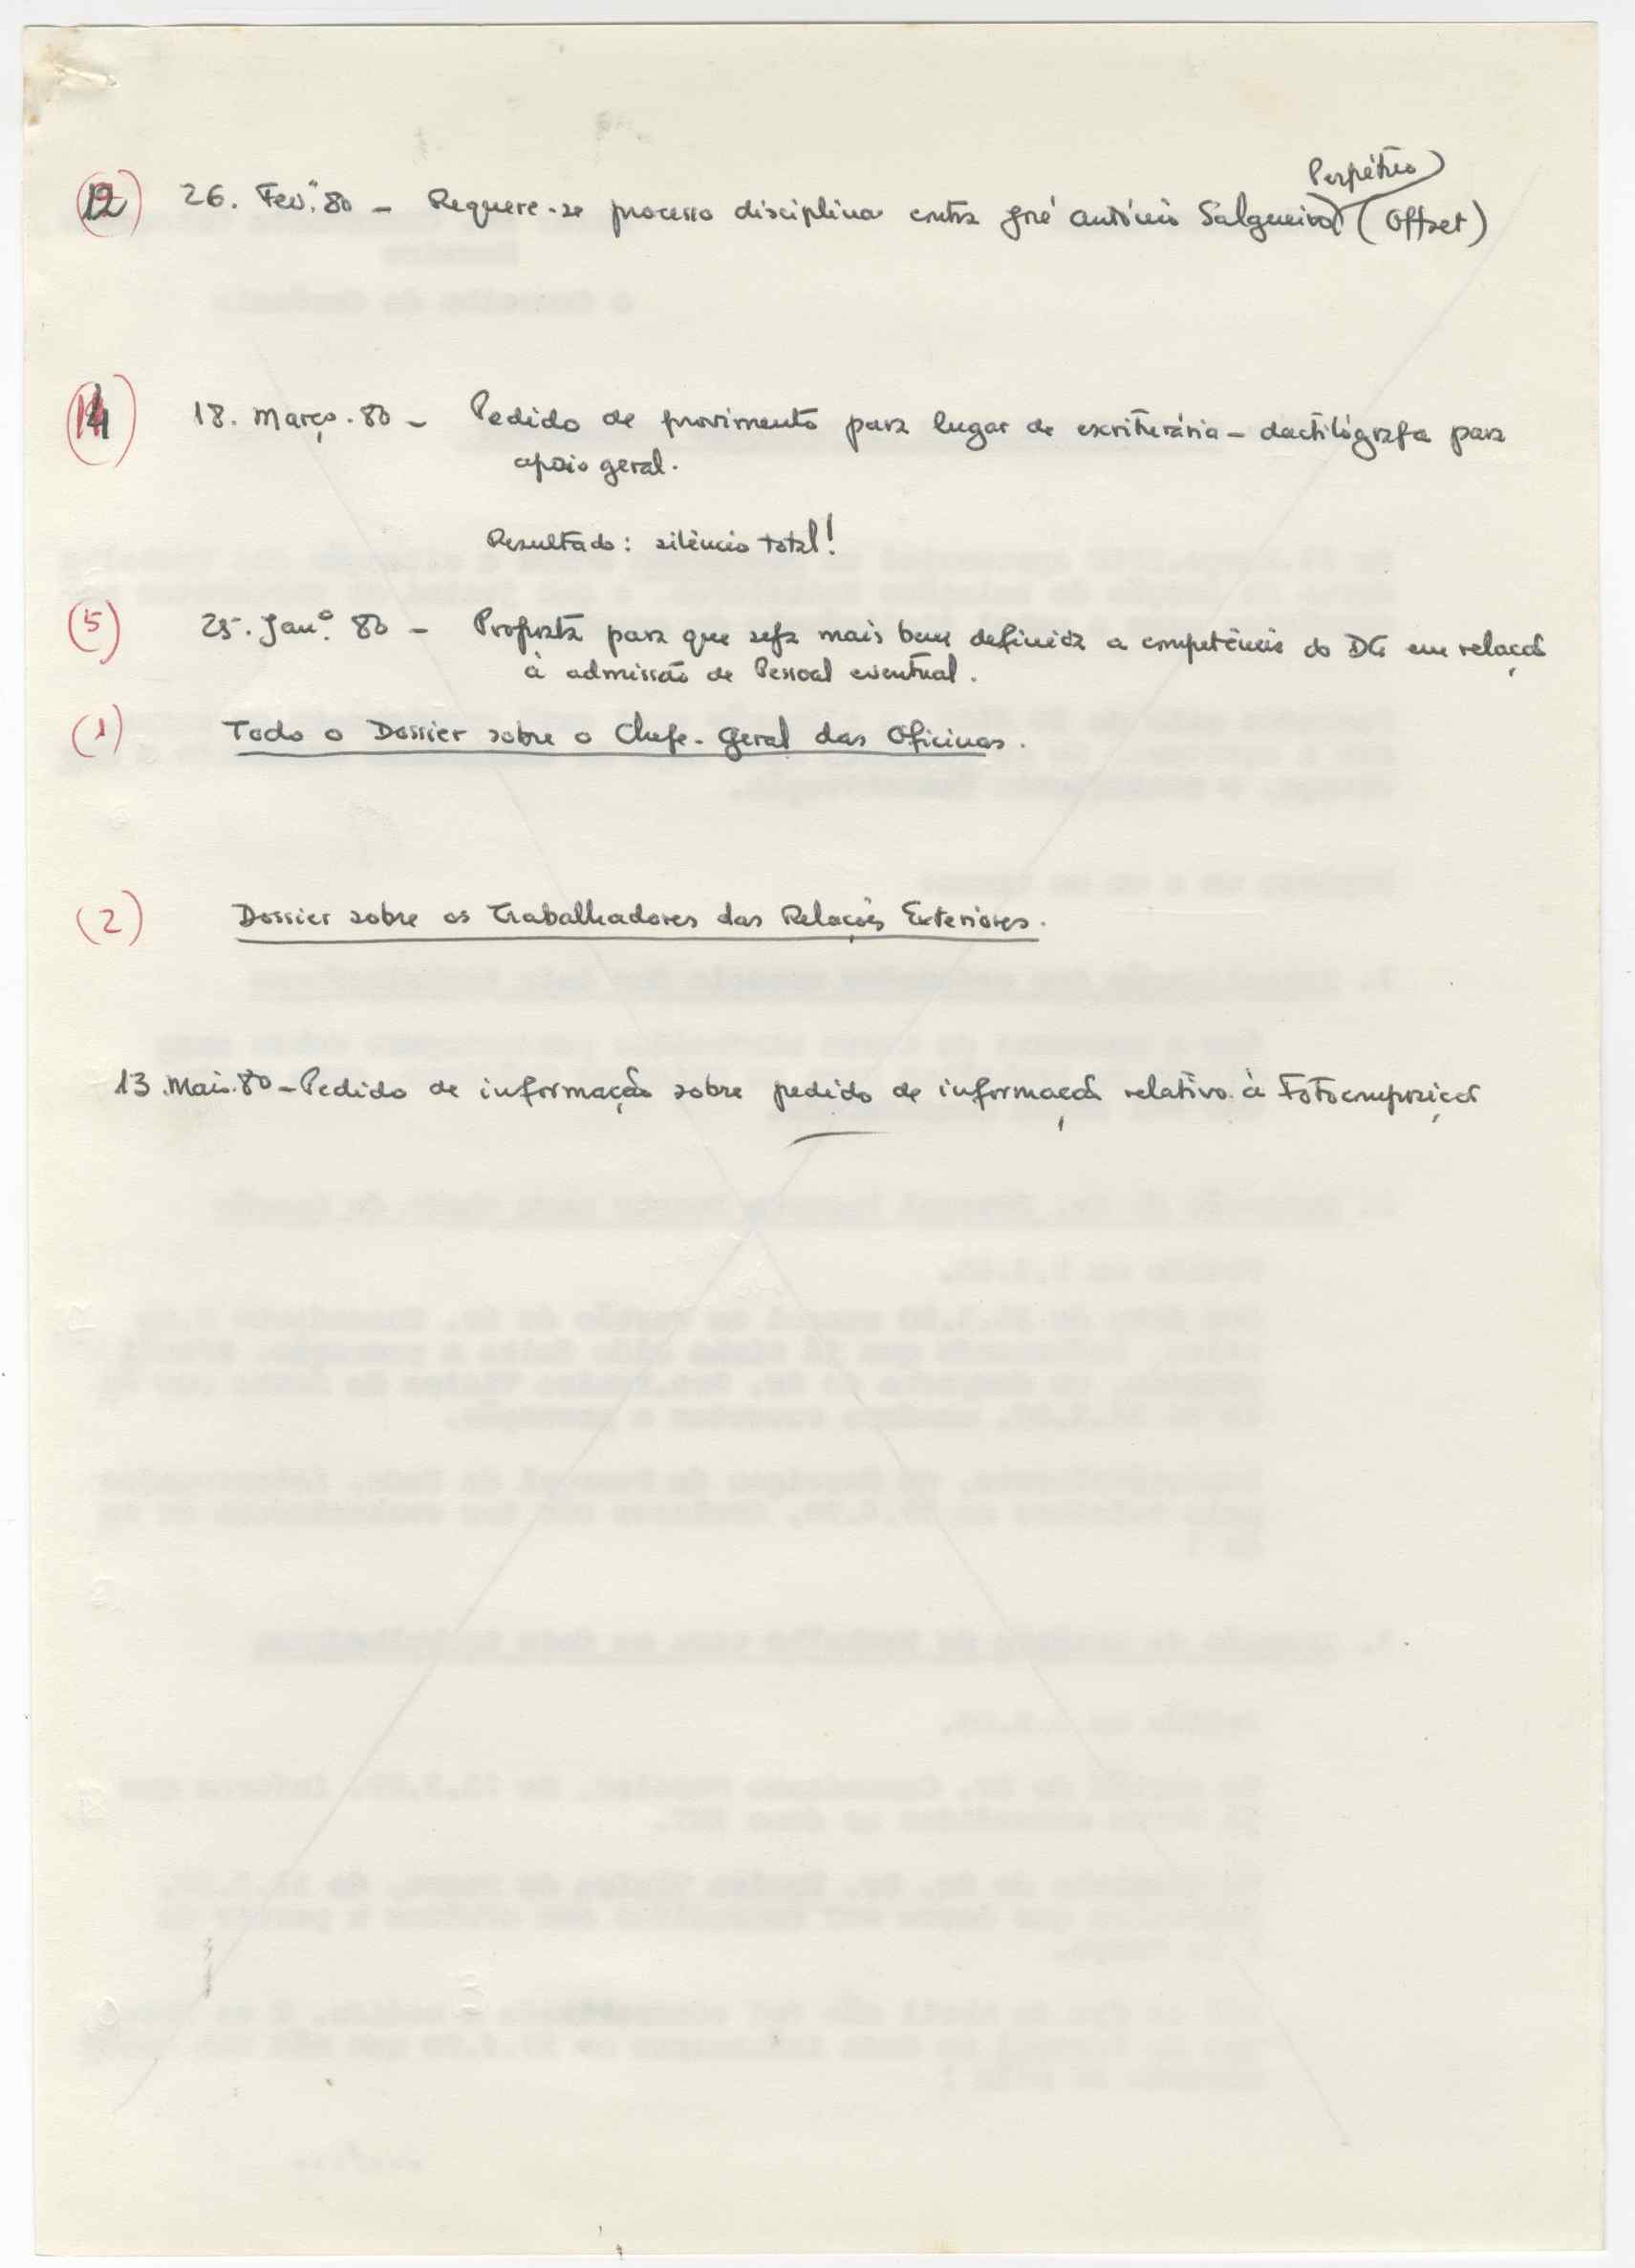 (12) 26. Fev.º 80 - Requere-se processo disciplinar contra José António Salgueiro Perpétuo (Offset)
(14) 18. Março. 80 - Pedido de provimento para lugar de escriturária - dactilógrafa para
apoio geral.
Resultado: silêncio total!
(5) 25. Jan.º 80 - Proposta para que seja mais bem definida a competência do DG em relação
à admissão de Pessoal eventual.
(1) Todo o Dossier sobre o Chefe-Geral das Oficinas.
(2) Dossier sobre os Trabalhadores das Relações Exteriores.
13. Maio. 80 - Pedido de informação sobre pedido de informação relativo à Fotocomposição